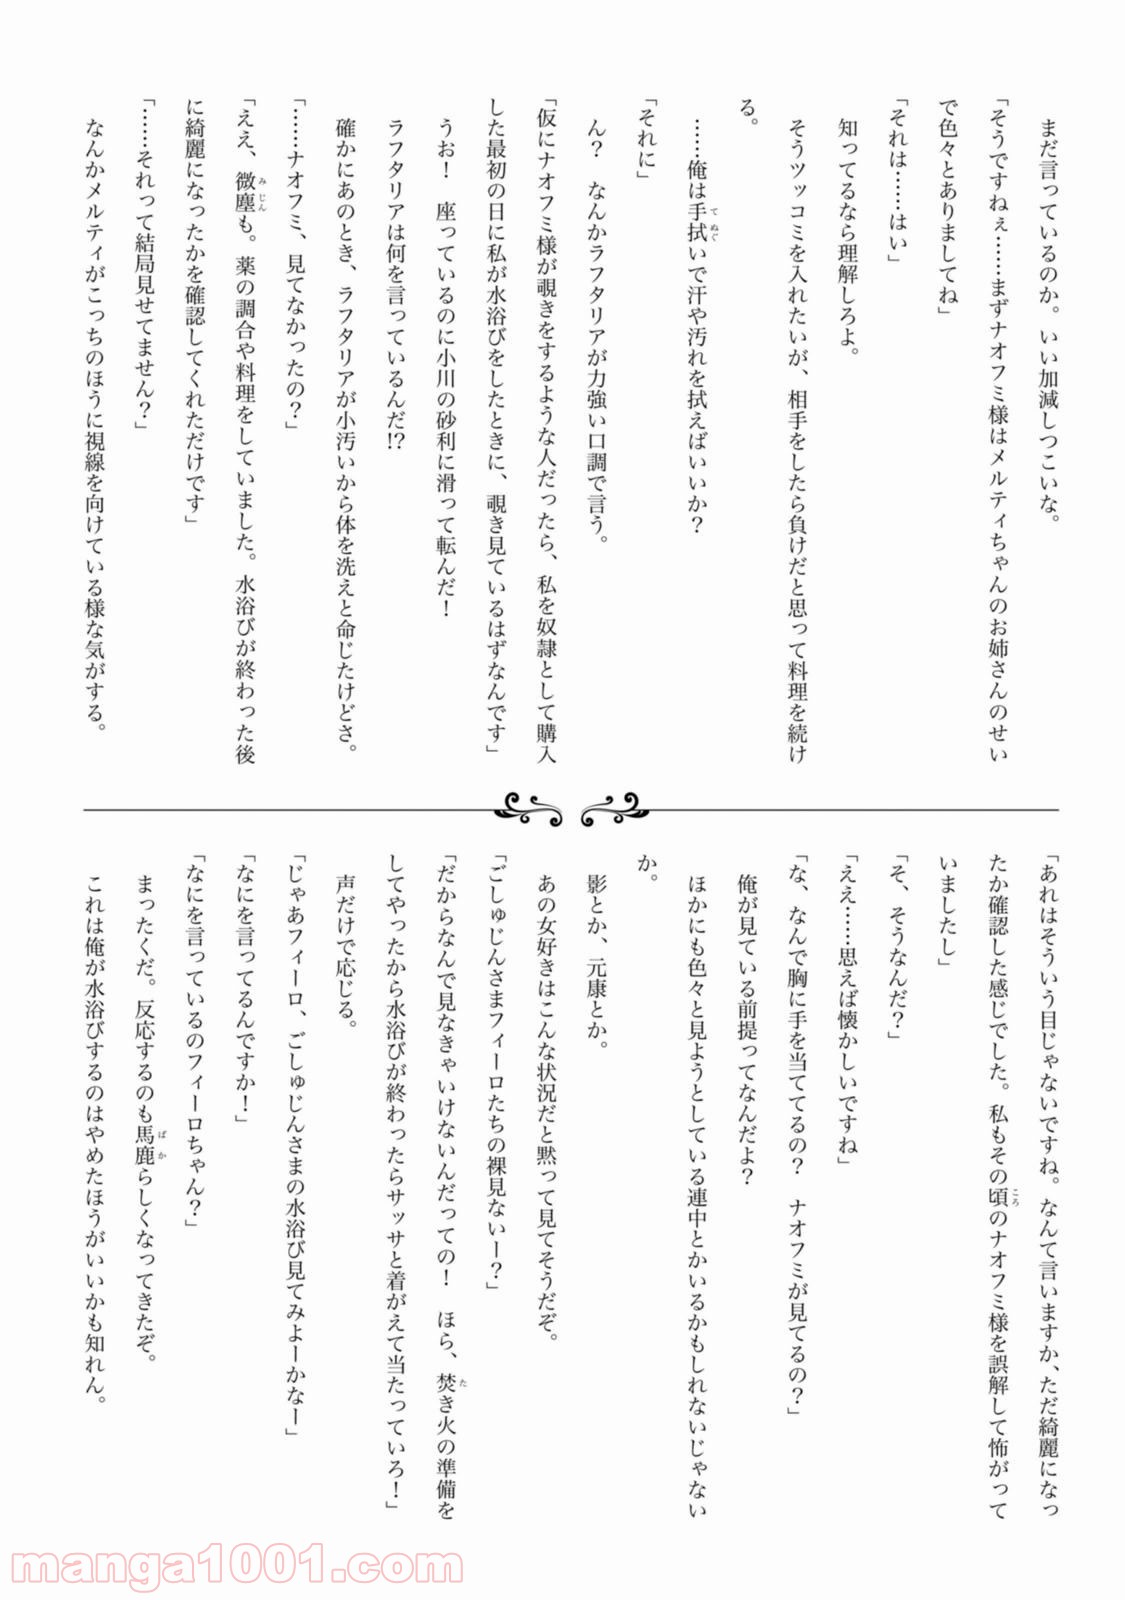 まだ言っているのか。いい加減しつこいな。
「そうですねぇ……まずナオフミ様はメルティちゃんのお姉さんのせい
で色々とありましてね」
「それは……はい」
知ってるなら理解しろよ。
そうツッコミを入れたいが、相手をしたら負けだと思って料理を続け
る。
……俺は手拭いで汗や汚れを拭えばいいか?
「それに」
ん? なんかラフタリアが力強い口調で言う。
「仮にナオフミ様が覗きをするような人だったら、私を奴隷として購入
した最初の日に私が水浴びをしたときに、覗き見ているはずなんです」
うお! 座っているのに小川の砂利に滑って転んだ!
ラフタリアは何を言っているんだ!?
確かにあのとき、ラフタリアが小汚いから体を洗えと命じたけどさ。
「……ナオフミ、見てなかったの?」
「ええ、微塵も。薬の調合や料理をしていました。水浴びが終わった後
に綺麗になったかを確認してくれただけです」
「……それって結局見せてません?」
なんかメルティがこっちのほうに視線を向けている様な気がする。
「あれはそういう目じゃないですね。なんて言いますか、ただ綺麗になっ
たか確認した感じでした。私もその頃のナオフミ様を誤解して怖がって
いましたし」
「そ、そうなんだ?」
「ええ……思えば懐かしいですね」
「な、なんで胸に手を当ててるの? ナオフミが見てるの?」
俺が見ている前提ってなんだよ?
ほかにも色々と見ようとしている連中とかいるかもしれないじゃない
か。
影とか、元康とか。
あの女好きはこんな状況だと黙って見てそうだぞ。
「ごしゅじんさまフィーロたちの裸見ないー?」
「だからなんで見なきゃいけないんだっての! ほら、焚き火の準備を
してやったから水浴びが終わったらサッサと着がえて当たっていろ!」
声だけで応じる。
「じゃあフィーロ、ごしゅじんさまの水浴び見てみよーかなー」
「なにを言ってるんですか!」
「なにを言っているのフィーロちゃん?」
まったくだ。反応するのも馬鹿らしくなってきたぞ。
これは俺が水浴びするのはやめたほうがいいかも知れん。
manga1001.com